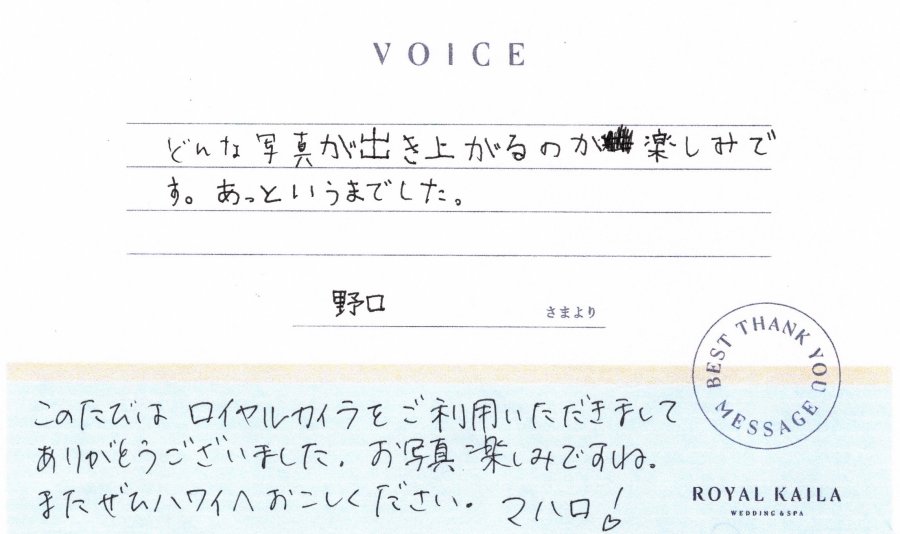 VOICE
どんな写真が出き上がるのが楽しみで
す。あっというまでした。
野口 さまより
BEST THANK YOU MESSAGE
このたびは ロイヤルカイラをご利用いただきまして
ありがとうございました。お写真楽しみですね。
またぜひハワイへおこしください。マハロ!
ROYAL KAILA
WEDDING & SPA